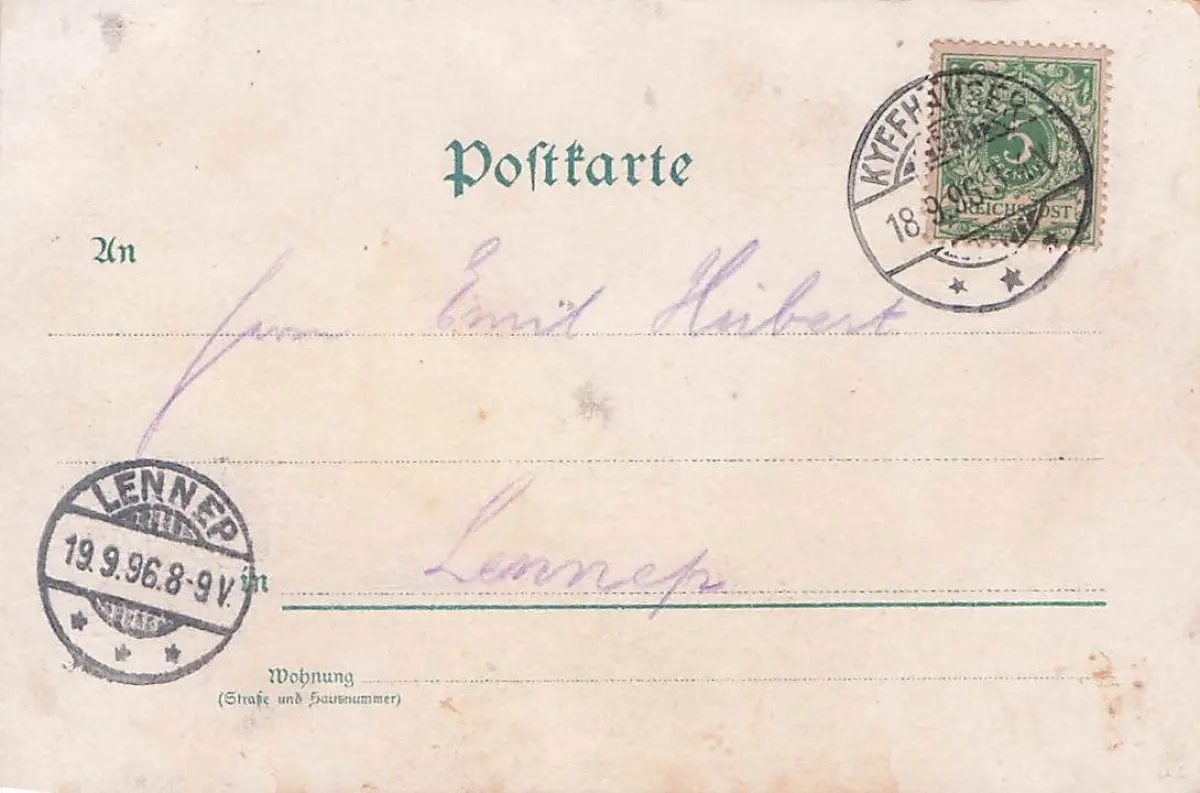 Postkarte
KYFFHÄUSER
18.9.96.3
5
REICHSPOST
An
Herrn Emil Hubert
LENNEP
19.9.96.8-9V.
in Lennep
Wohnung
(Straße und Hausnummer)